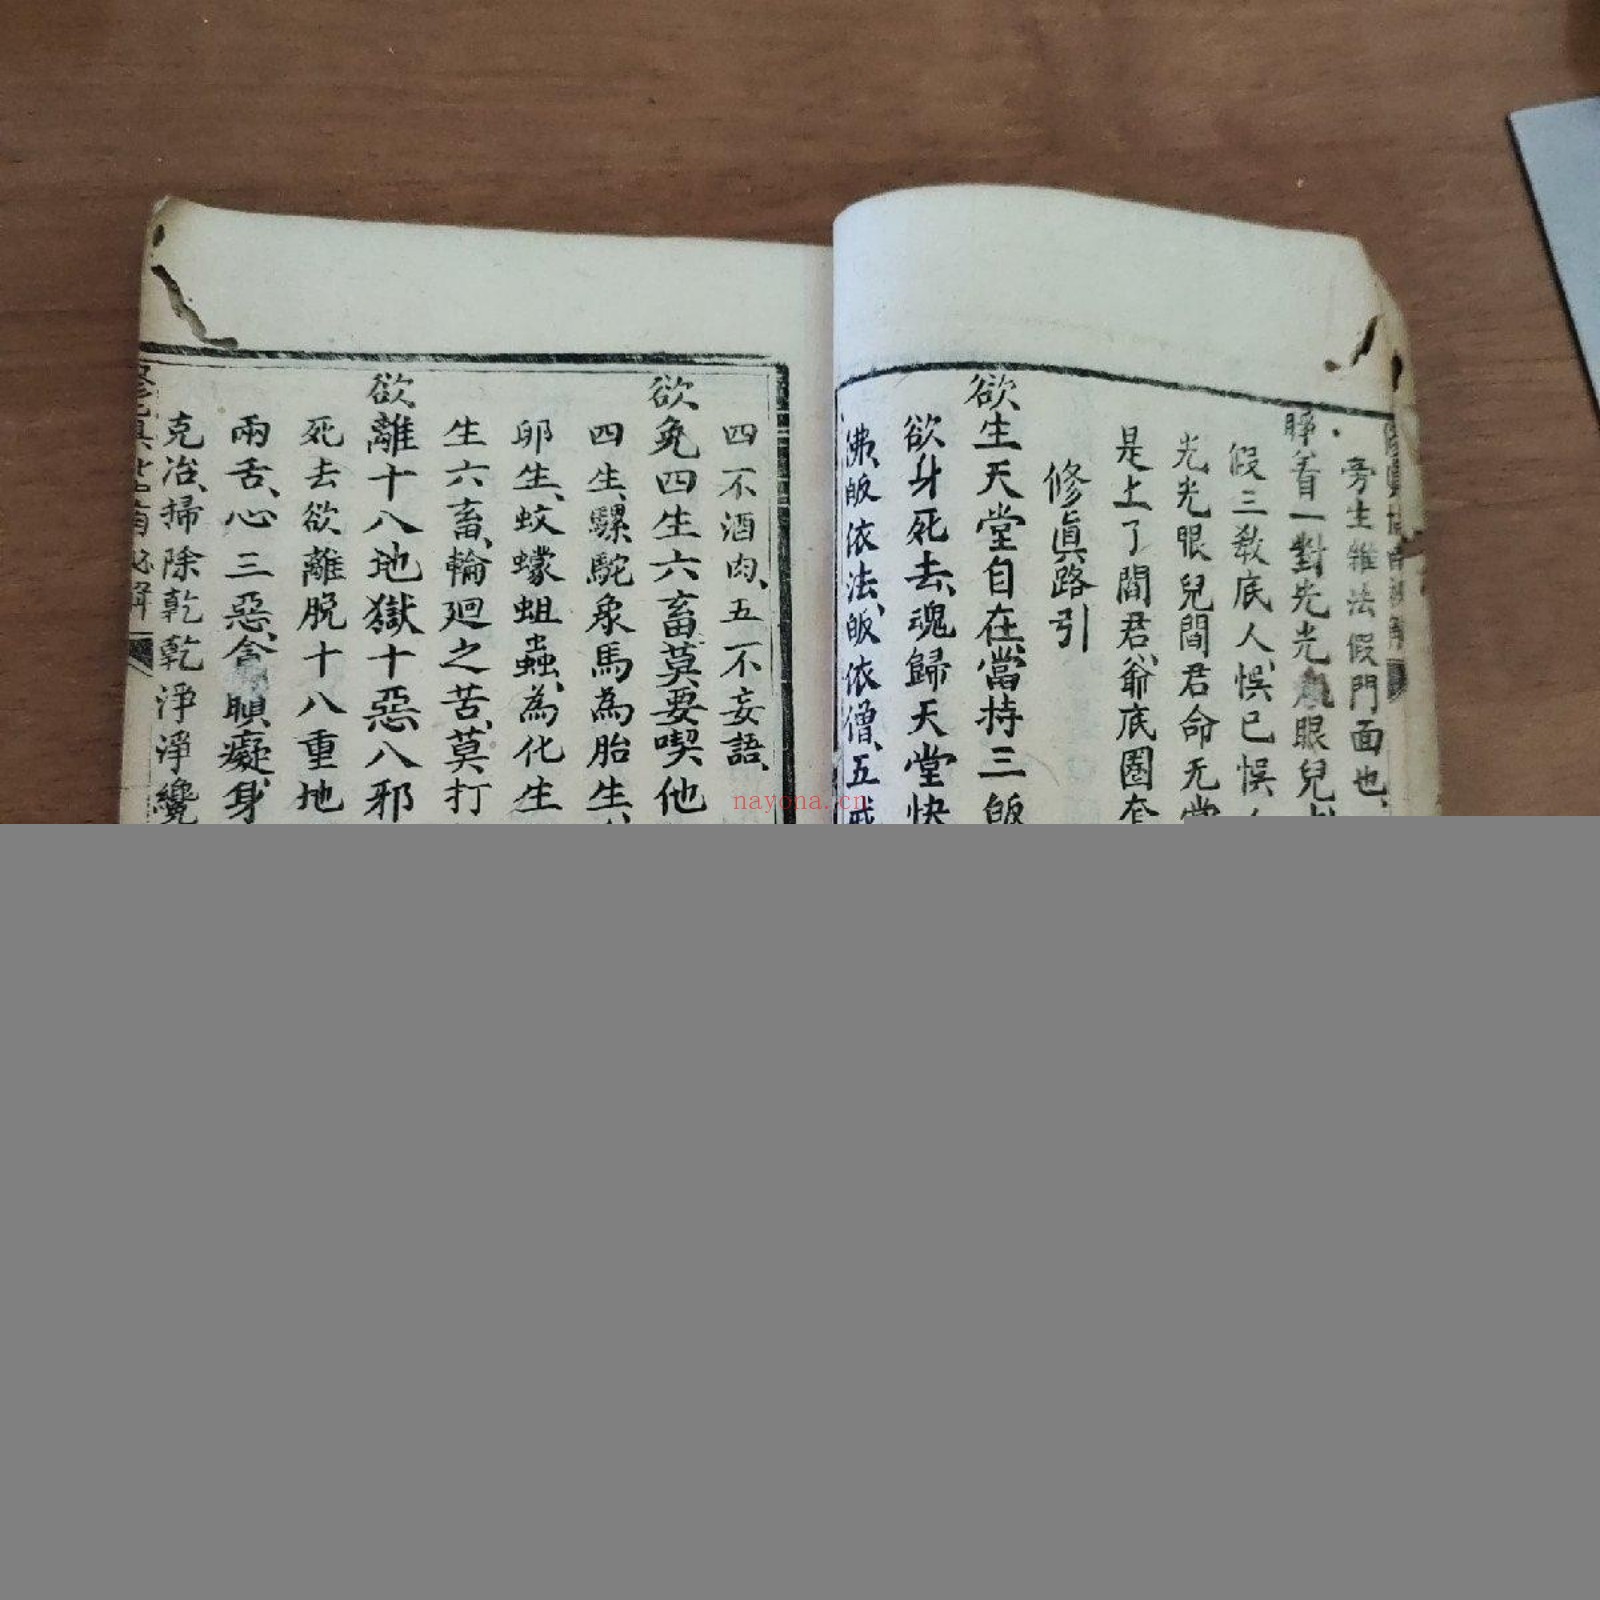 旁生雜法假門面也、
睜着一對光光眼兒
假三教底人、悮己悮
光光眼兒閻君命无常
是上了閻君、爺底圈套
修眞路引
欲生天堂自在、當持三皈
欲身死去、魂歸天堂快
佛、皈依法、皈依僧、五戒
四不酒肉、五不妄語、
欲免四生六畜、莫要喫他
四生、騾駝象馬為胎生、
卵生、蚊蠓蛆蟲、為化生
生六畜、輪廻之苦、莫打
欲離十八地獄十惡八邪
死去欲離脫十八重地
兩舌、心三惡、貪瞋癡、身
克治、掃除乾乾淨淨纔
nayona.cn